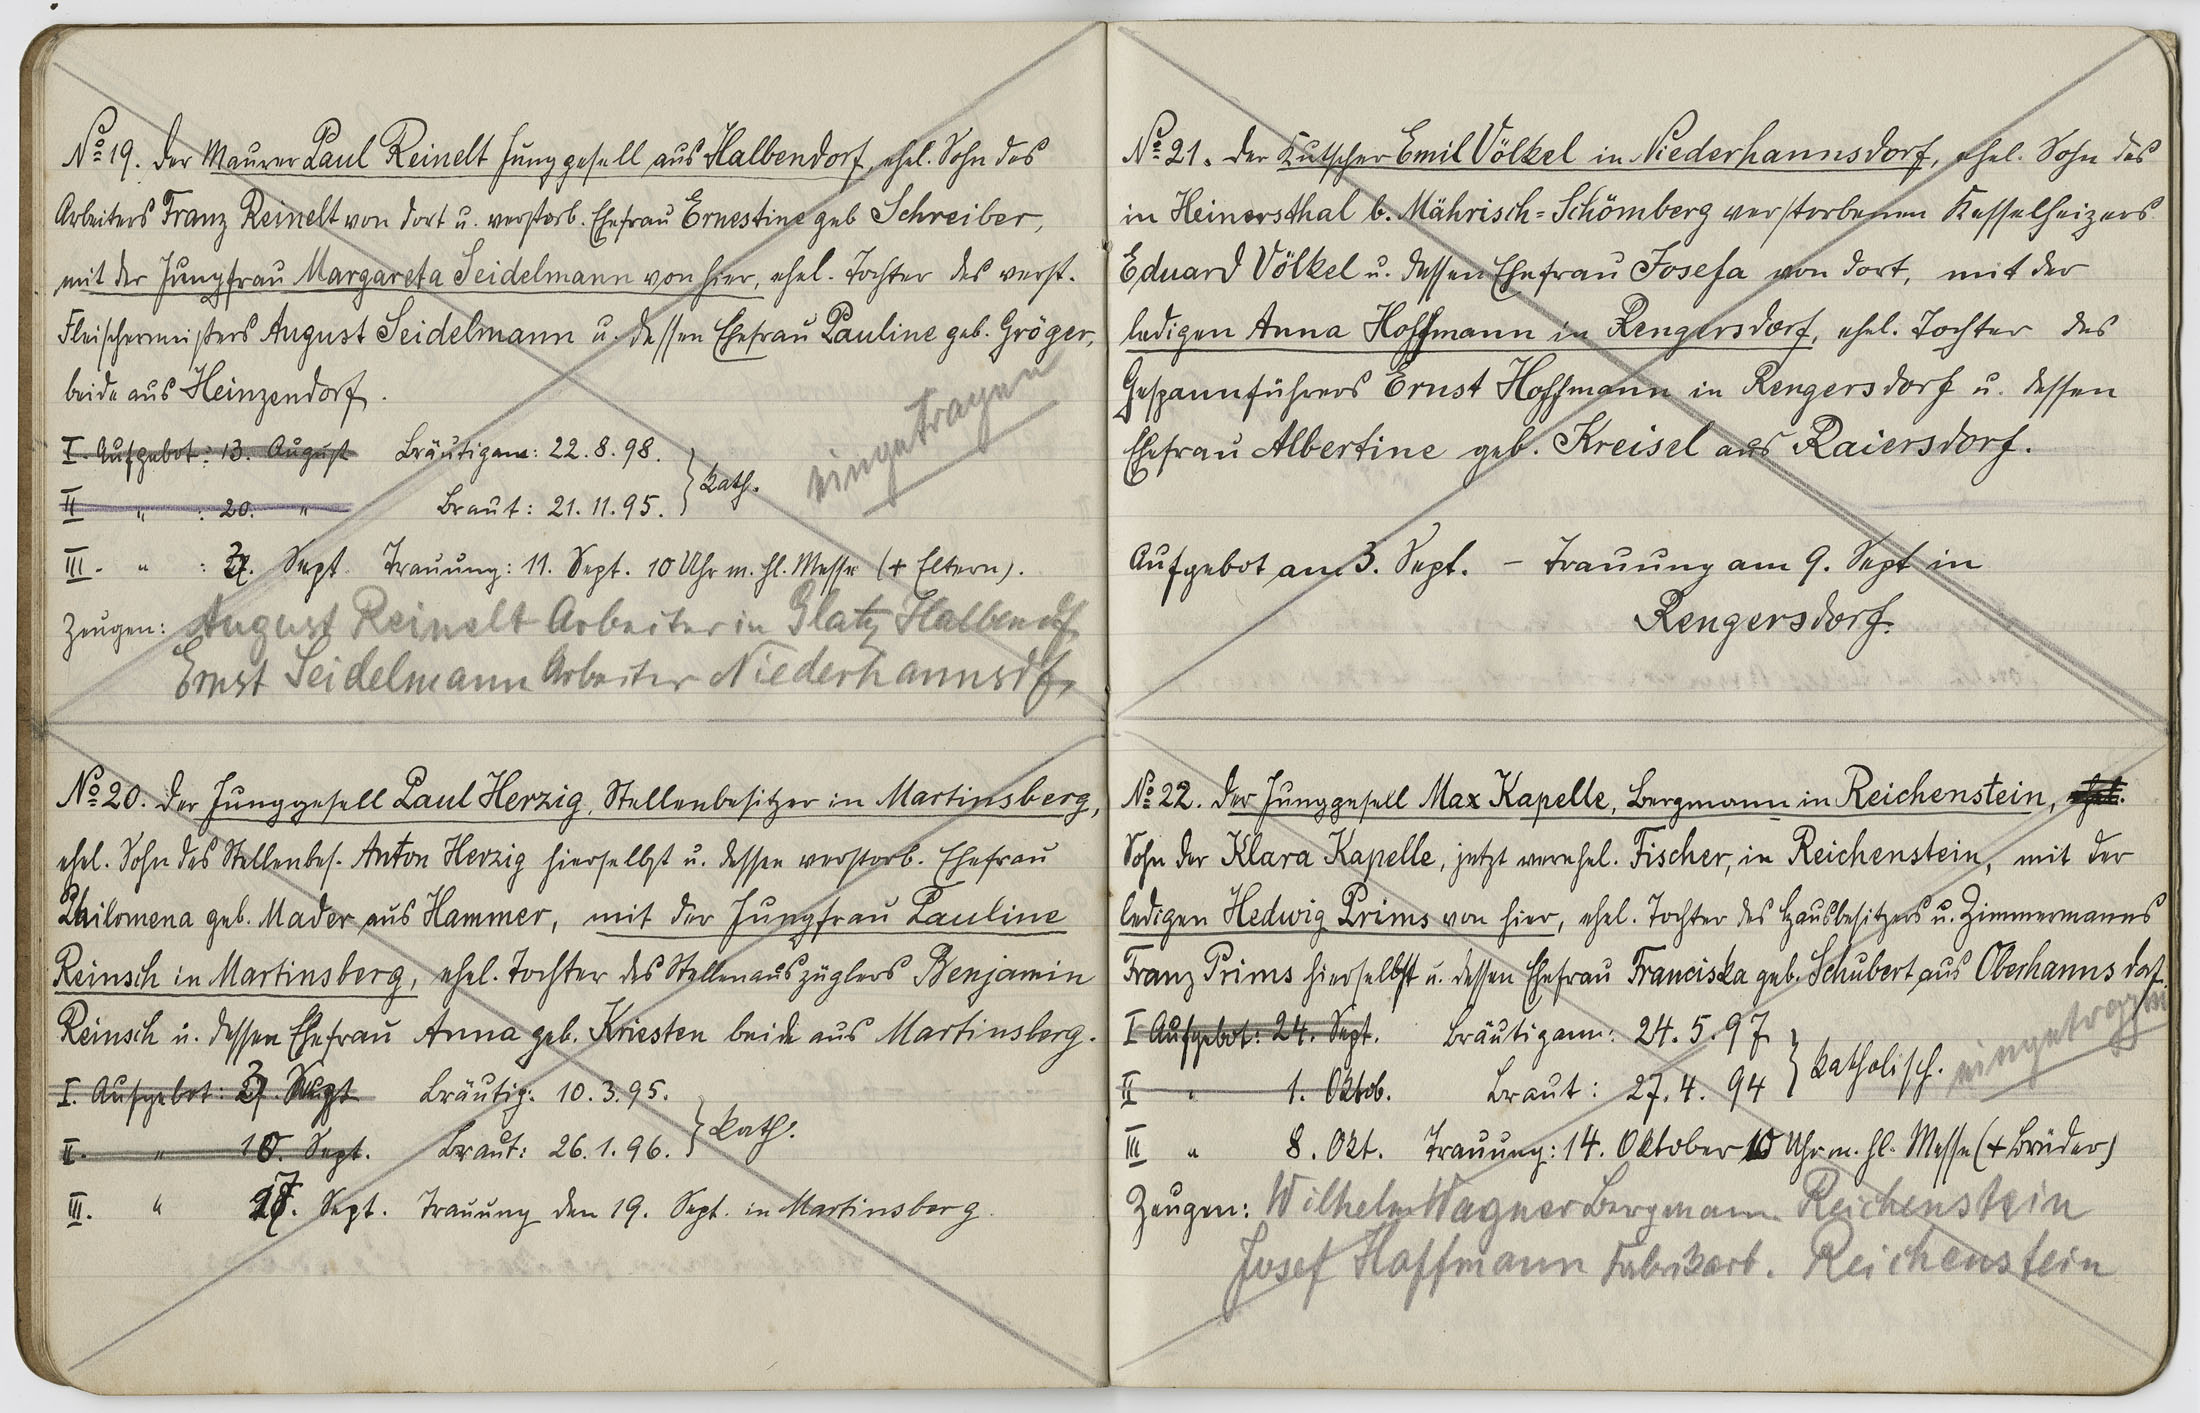 No 19. Der Maurer Paul Reinelt Junggesell aus Halbendorf, ehel. Sohn des
Arbeiters Franz Reinelt von dort u. verstorb. Ehefrau Ernestine geb Schreiber,
mit der Jungfrau Margareta Seidelmann von hier, ehel. Tochter des verst.
Fleischermeisters August Seidelmann u. dessen Ehefrau Pauline geb. Gröger,
beide aus Heinzendorf.
eingetragen
I. Aufgebot: 13. August Bräutigam: 22.8.98.
II " : 20. " Braut: 21.11.95. } kath.
III. " : 3. Sept. Trauung: 11. Sept. 10 Uhr m. hl. Messe (+ Eltern).
Zeugen: August Reinelt Arbeiter in Glatz Halbendf
Ernst Seidelmann Arbeiter Niederhannsdf,
No 20. Der Junggesell Paul Herzig, Stellenbesitzer in Martinsberg,
ehel. Sohn des Stellenbes. Anton Herzig hierselbst u. dessen verstorb. Ehefrau
Philomena geb. Mader aus Hammer, mit der Jungfrau Pauline
Reinsch in Martinsberg, ehel. Tochter des Stellenauszüglers Benjamin
Reinsch u. dessen Ehefrau Anna geb. Kriesten beide aus Martinsberg.
I. Aufgebot: 3. Sept Bräutig: 10.3.95.
II. " 10. Sept. Braut: 26.1.96. } kath.
III. " 17. Sept. Trauung den 19. Sept. in Martinsberg.
No 21. Der Kutscher Emil Völkel in Niederhannsdorf, ehel. Sohn des
in Heinersthal b. Mährisch=Schömberg verstorbenen Kesselheizers
Eduard Völkel u. dessen Ehefrau Josefa von dort, mit der
ledigen Anna Hoffmann in Rengersdorf, ehel. Tochter des
Gespannführers Ernst Hoffmann in Rengersdorf u. dessen
Ehefrau Albertine geb. Kreisel aus Raiersdorf.
Aufgebot am 3. Sept. – Trauung am 9. Sept in
Rengersdorf.
No 22. Der Junggesell Max Kapelle, Bergmann in Reichenstein, ehel.
Sohn der Klara Kapelle, jetzt verehel. Fischer, in Reichenstein, mit der
ledigen Hedwig Prims von hier, ehel. Tochter des Hausbesitzers u. Zimmermanns
Franz Prims hierselbst u. dessen Ehefrau Franciska geb. Schubert aus Oberhannsdorf.
I Aufgebot: 24. Sept. Bräutigam: 24.5.97
II " 1. Oktob. Braut: 27.4.94 } katholisch. eingetragen
III " 8. Okt. Trauung: 14. Oktober 10 Uhr m. hl. Messe (+ Brüder)
Zeugen: Wilhelm Wagner Bergmann Reichenstein
Josef Hoffmann Fabrikarb. Reichenstein